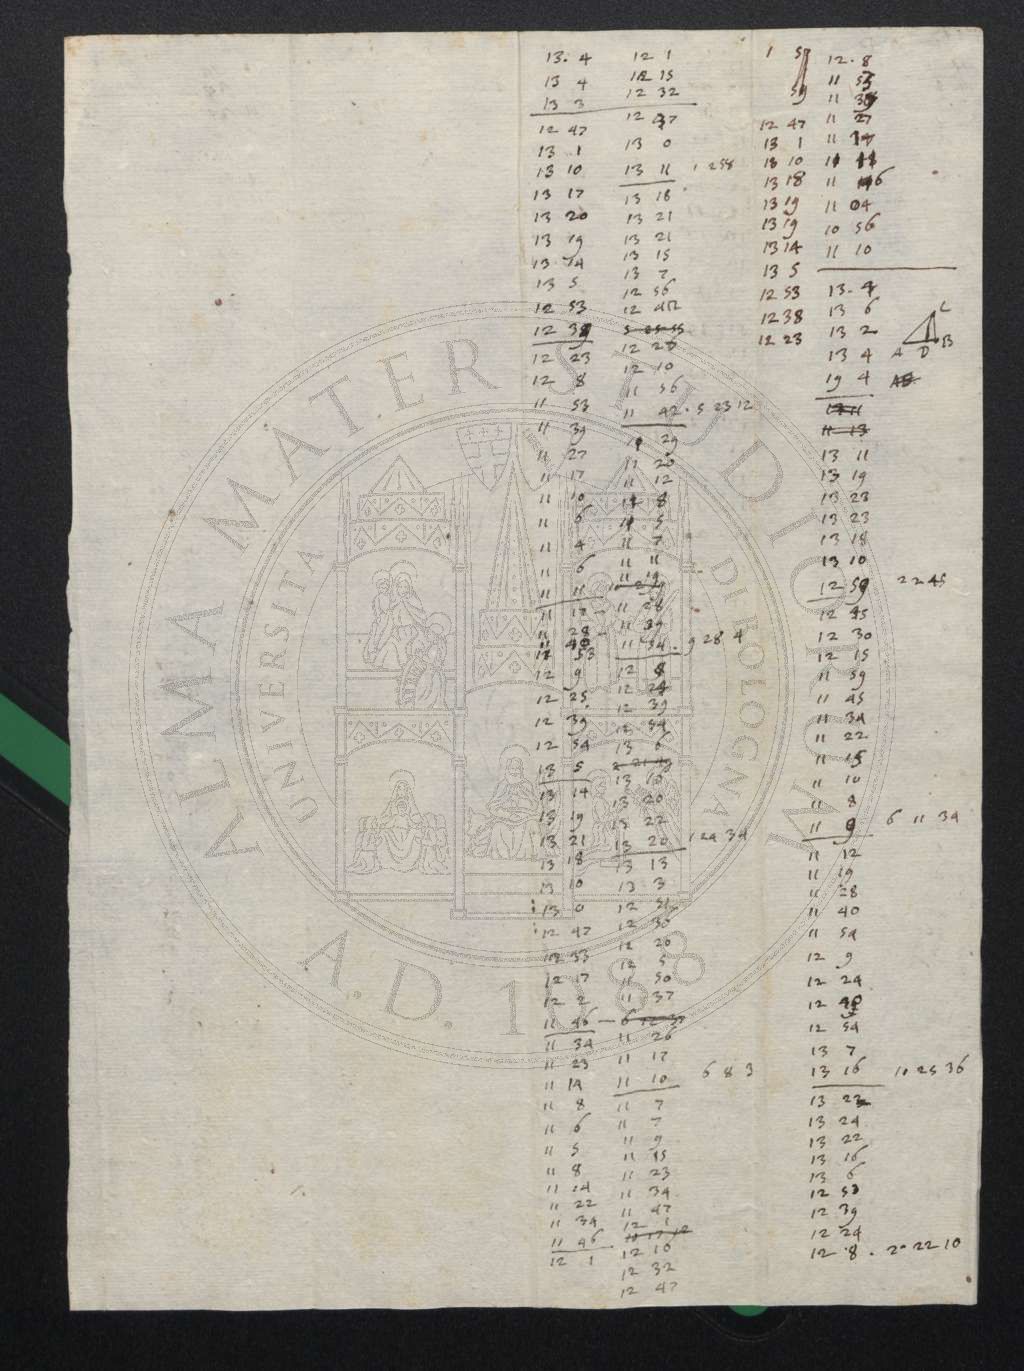 13. 4
13 4
13 3
12 47
13 1
13 10
13 17
13 20
13 19
13 14
13 5
12 53
12 39
12 23
12 8
11 53
11 39
11 27
11 17
11 10
11 6
11 4
11 6
11 11
11 17
11 28
11 40
11 53
12 9
12 25
12 39
12 54
13 5
13 14
13 19
13 21
13 18
13 10
13 0
12 47
12 33
12 17
12 2
11 46
11 34
11 23
11 14
11 8
11 6
11 5
11 8
11 14
11 22
11 34
11 46
12 1
12 1
12 15
12 32
12 47
13 0
13 11 1 258
13 18
13 21
13 21
13 15
13 7
12 56
12 42
12 25
12 10
11 56
11 42. 5 23 12
11 29
11 20
11 12
11 8
11 5
11 7
11 11
11 19
11 28
11 39
11 54. 9 28 4
12 8
12 24
12 39
12 54
13 6
2 21 49
13 15
13 20
13 22
13 20 1 24 34
13 13
13 3
12 51
12 36
12 20
12 5
11 50
11 37
6 12 37
11 26
11 17
11 10 6 8 3
11 7
11 7
11 9
11 15
11 23
11 34
11 47
12 1
12 16
12 32
12 47
1 59
59
12 47
13 1
13 10
13 18
13 19
13 19
13 14
13 5
12 53
12 38
12 23
12. 8
11 53
11 39
11 27
11 17
11 11
11 6
11 04
10 56
11 10
13. 4
13 6
13 2
13 4
19 4
C
A D B
AB
12 11
11 13
13 11
13 19
13 23
13 23
13 18
13 10
12 59 2 2 45
12 45
12 30
12 15
11 59
11 45
11 34
11 22
11 15
11 10
11 8
11 9 6 11 34
11 12
11 19
11 28
11 40
11 54
12 9
12 24
12 40
12 54
13 7
13 16 11 25 36
13 22
13 24
13 22
13 16
13 6
12 53
12 39
12 24
12 8. 2 22 10
ALMA MATER STUDIORUM
UNIVERSITÀ DI BOLOGNA
A.D. 1088